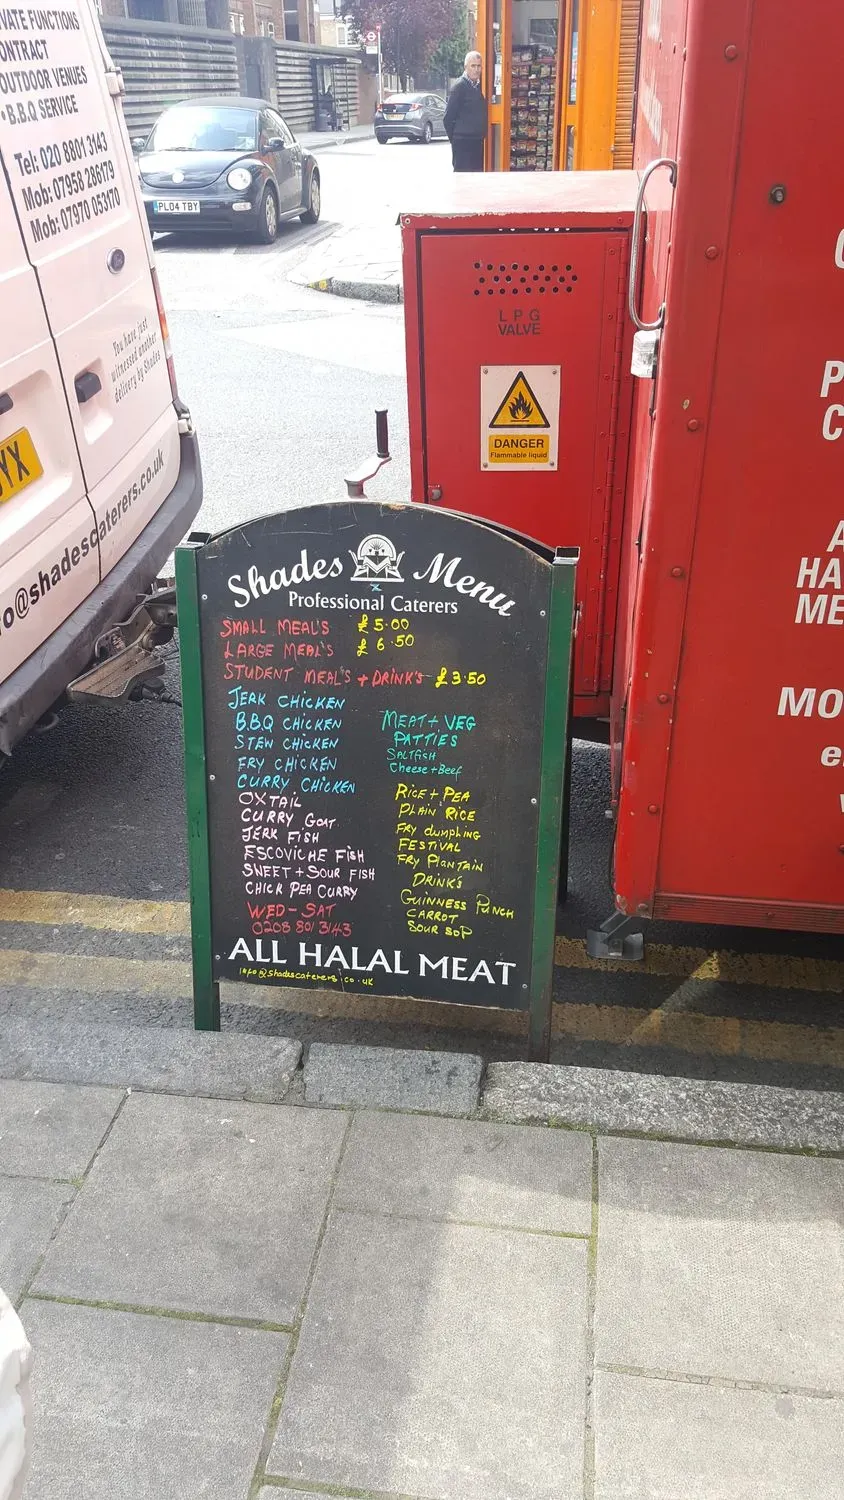 VATE FUNCTIONS
ONTRACT
OUTDOOR VENUES
• B.B.Q SERVICE
Tel: 020 8801 3143
Mob: 07958 286179
Mob: 07970 053170
You have just
witnessed another
delivery by Shades
YX
o@shadescaterers.co.uk
PL04 TBY
L P G
VALVE
DANGER
Flammable liquid
P
C
A
HA
ME
MO
e
Shades Menu
Professional Caterers
SMALL MEAL'S £5.00
LARGE MEAL'S £6.50
STUDENT MEAL'S + DRINK'S £3.50
JERK CHICKEN
B.B.Q CHICKEN
STEW CHICKEN
FRY CHICKEN
CURRY CHICKEN
OXTAIL
CURRY GOAT
JERK FISH
ESCOVICHE FISH
SWEET + SOUR FISH
CHICK PEA CURRY
WED - SAT
0208 801 3143
MEAT + VEG
PATTIES
SALTFISH
Cheese + Beef
RICE + PEA
PLAIN RICE
FRY dumpling
FESTIVAL
FRY PlANTAIN
DRINK'S
GUINNESS PUNCH
CARROT
SOUR SOP
ALL HALAL MEAT
info@shadescaterers.co.uk